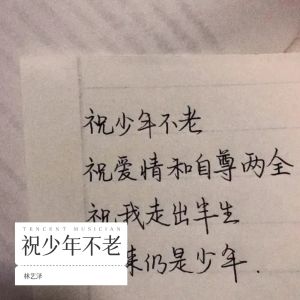 祝少年不老
祝爱情和自尊两全
祝我走出半生
来仍是少年.
TENCENT MUSICIAN
祝少年不老
林艺泽